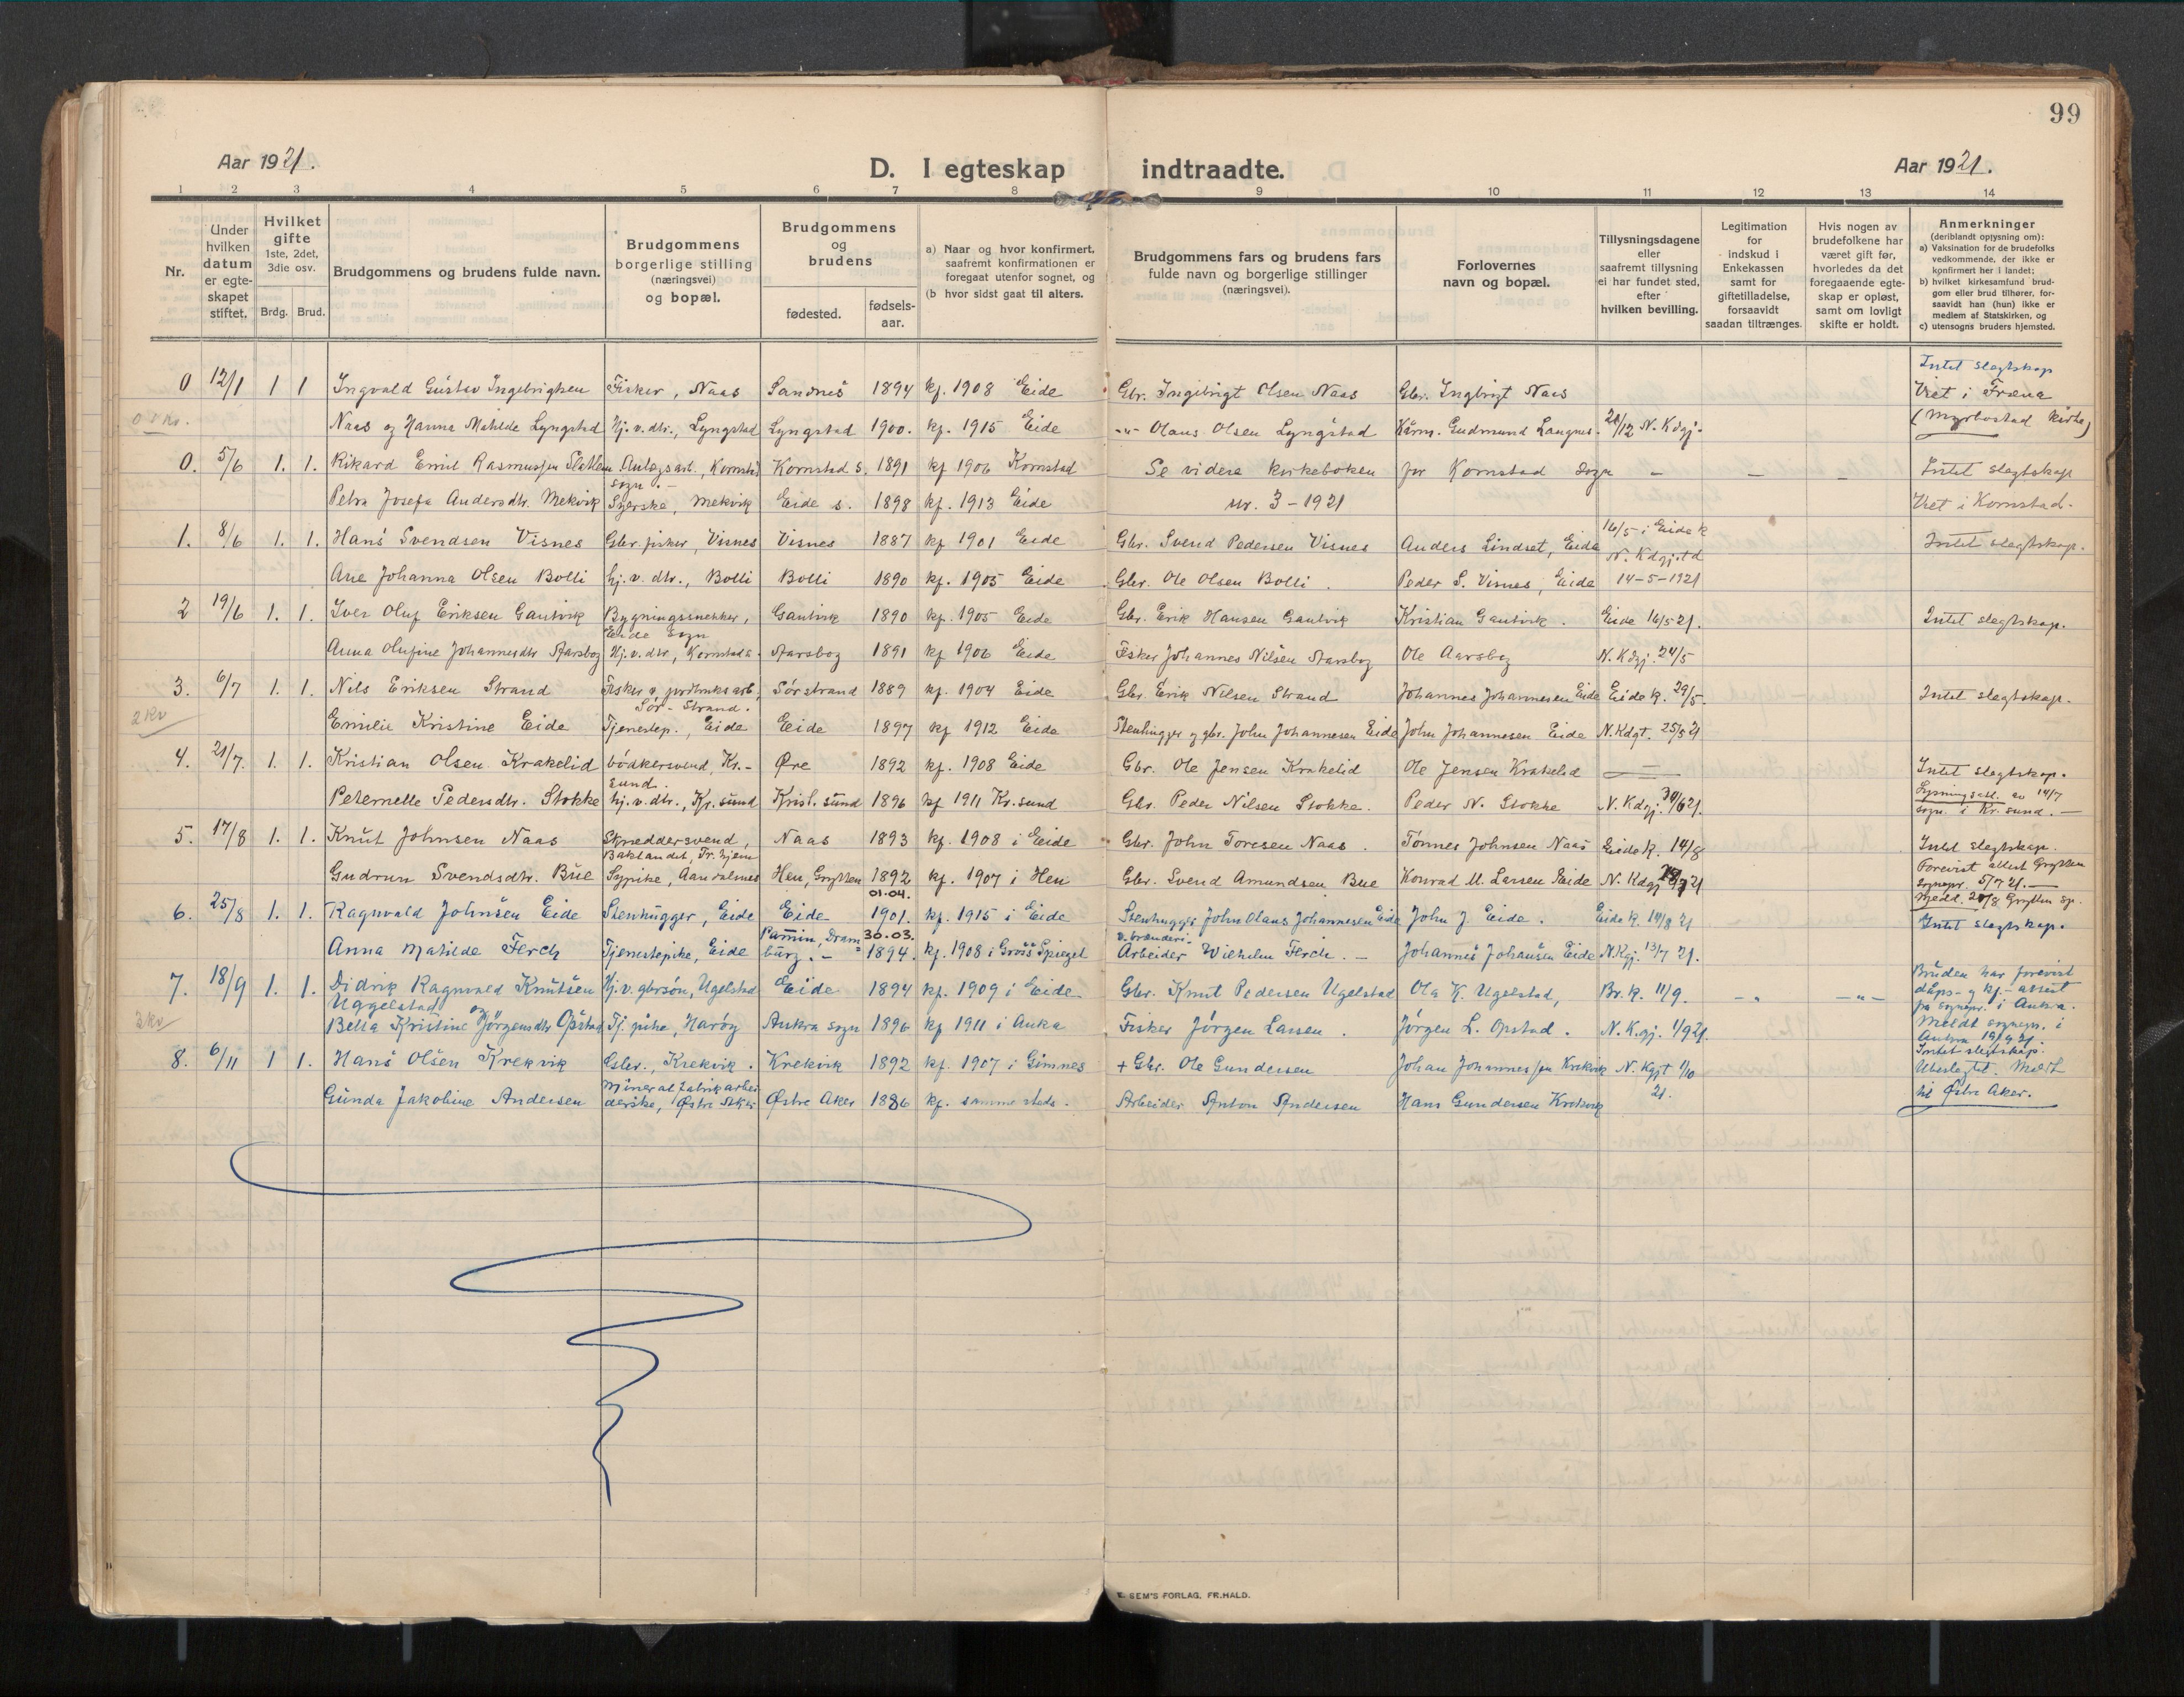 99
Aar 1921.
D. I egteskap indtraadte.
Aar 1921.
1 2 3 4 5 6 7 8 9 10 11 12 13 14
Nr.
Under hvilken datum er egte-skapet stiftet.
Hvilket gifte 1ste, 2det, 3die osv.
Brdg. Brud.
Brudgommens og brudens fulde navn.
Brudgommens borgerlige stilling (næringsvei) og bopæl.
Brudgommens og brudens
fødested.
fødsels-aar.
a) Naar og hvor konfirmert, saafremt konfirmationen er foregaat utenfor sognet, og
(b hvor sidst gaat til alters.
Brudgommens fars og brudens fars fulde navn og borgerlige stillinger (næringsvei).
Forlovernes navn og bopæl.
Tillysningsdagene eller saafremt tillysning ei har fundet sted, efter hvilken bevilling.
Legitimation for indskud i Enkekassen samt for giftetilladelse, forsaavidt saadan tiltrænges.
Hvis nogen av brudefolkene har været gift før, hvorledes da det foregaaende egte-skap er opløst, samt om lovligt skifte er holdt.
Anmerkninger (deriblandt oplysning om):
a) Vaksination for de brudefolks vedkommende, der ikke er konfirmert her i landet;
b) hvilket kirkesamfund brud-gom eller brud tilhører, for-saavidt han (hun) ikke er medlem af Statskirken, og
c) utensogns bruders hjemsted.
Intet slegtskap
0 12/1 1 1 Ingvald Gustav Ingebrigtsen Fisker, Naas Sandnes 1894 kf. 1908 Eide Gbr. Ingebrigt Olsen Naas Gbr. Ingbrigt Naas Viet i Fræna
Naas og Hanna Mathilde Lyngstad Hj.v.dtr., Lyngstad Lyngstad 1900. kf. 1915 Eide -"- Olaus Olsen Lyngstad Gudmund Langnes. 28/12 N. Kdgj. (Myrbostad kirke)
0. 5/6 1. 1. Rikard Emil Rasmussen Anlægsarb., Kornstad sogn.- Kornstad s. 1891 kf 1906 Kornstad Se videre kirkeboken for Kornstad sogn - - - Intet slegtskap
Petra Josefa Andersdtr. Mekvik Syerske, Mekvik Eide s. 1898 kf. 1913 Eide nr. 3 - 1921 Viet i Kornstad.
1. 8/6 1. 1. Hans Svendsen Visnes Gbr. fisker, Visnes Visnes 1887 kf 1901 Eide Gbr. Svend Pedersen Visnes Anders Lindset, Eide 16/5 i Eide k N. Kdgj. td Intet slegtskap.
Ane Johanna Olsen Bolli hj.v. dtr., Bolli Bolli 1890 kf. 1905 Eide Gbr. Ole Olsen Bolli. Peder S. Visnes, Eide 14-5-1921
2 19/6 1. 1. Iver Oluf Eriksen Gautvik Bygningssnekker, Eide sogn Gautvik 1890 kf. 1905 Eide Gbr. Erik Hansen Gautvik Kristian Gautvik. Eide 16/5 21. Intet slegtskap.
Anna Olufine Johannesdtr Aarsbog Hj.v.dtr, Kornstad s. Aarsbog 1891 kf 1906 Eide Fisker Johannes Nilsen Aarsbog Ole Aarsbog N. Kdgj. 24/5
3. 6/7 1. 1. Nils Eriksen Strand Fisker og jordbruksarb., Sør-Strand. Sørstrand 1889 kf. 1904 Eide Gbr. Erik Nilsen Strand Johannes Johannesen Eide Eide k. 29/5. Intet slegtskap.
2 kv
Emilie Kristine Eide Tjenestep., Eide Eide 1897 kf 1912 Eide Stenhugger og gbr. John Johannesen Eide John Johannesen Eide N. Kdgt. 25/5 21
4. 21/7. 1. 1. Kristian Olsen Krakelid bødkersvend, Kr.-sund. Øre 1892 kf. 1908 Eide Gbr. Ole Jensen Krakelid Ole Jensen Krakelid Intet slegtskap.
Peternelle Pedersdtr. Stokke hj.v.dtr., Kr.sund Krist.sund 1896 kf 1911 Kr.sund Gbr. Peder Nilsen Stokke. Peder N. Stokke N. Kdgj. 30/6 21. Lysningsatt. av 14/7 sogn. i Kr.sund.-
5. 17/8 1. 1. Knut Johnsen Naas Skreddersvend, Baklandet, Tr.hjem Naas 1893 kf. 1908 i Eide Gbr. John Toresen Naas. Tønnes Johnsen Naas Eide k. 14/8 Intet slegtskap.
Gudrun Svendsdtr. Bue Sypike, Aandalsnes Hen, Grytten 1892 kf. 1907 i Hen Gbr. Svend Amundsen Bue Konrad M. Larsen Eide N. Kdgj 21 Forevist attest Grytten sognepr. 5/7 21.- Medd. 20/8 Grytten sp.
01.04.
6. 25/8 1. 1. Ragnvald Johnsen Eide Stenhugger, Eide Eide 1901. kf. 1915 i Eide Stenhugger John Olaus Johannesen Eide John J. Eide. Eide k. 14/8 21 Intet slegtskap.
30.03.
Anna Matilde Ferch Tjenestepike, Eide Pammin, Dramburg.- 1894. kf. 1908 i Gross Spiegel v. brænderi- Arbeider Wilhelm Ferch.- Johannes Johansen Eide N.Kgj. 13/7 21.
7. 18/9 1. 1. Didrik Ragnvald Knutsen Uggelstad og Hj.v. gbrsøn, Ugelstad Eide 1894 kf. 1909 i Eide Gbr. Knut Pedersen Ugelstad Ola K. Ugelstad, Br. k. 11/9. -"- -"- Bruden har forevist daps- og kf.- attest fra sognepr. i Aukra.
3 kv
Bella Kristine Jørgensdtr Opstad Tj. pike, Harøy Aukra sogn 1896 kf 1911 i Auka Fisker Jørgen Larsen. Jørgen L. Opstad. N. K.gj. 1/9 21. Meldt sognepr. i Aukra 19/9 21.
8. 6/11 1 1. Hans Olsen Krekvik Gbr., Krekvik. Krekvik 1892 kf. 1907 i Gimnes + Gbr. Ole Gundersen Johan Johannessen Krekvik N. Kgjt 1/10 21. Intet slegtskap. Ubeslegtet. Meldt
Gunda Jakobine Andersen Mineralfabrikarbeiderske, Østre Aker Østre Aker 1886 kf. samme steds. Arbeider Anton Andersen Hans Gundersen Krekvik til Østre Aker.
E. SEM'S FORLAG, FR.HALD.